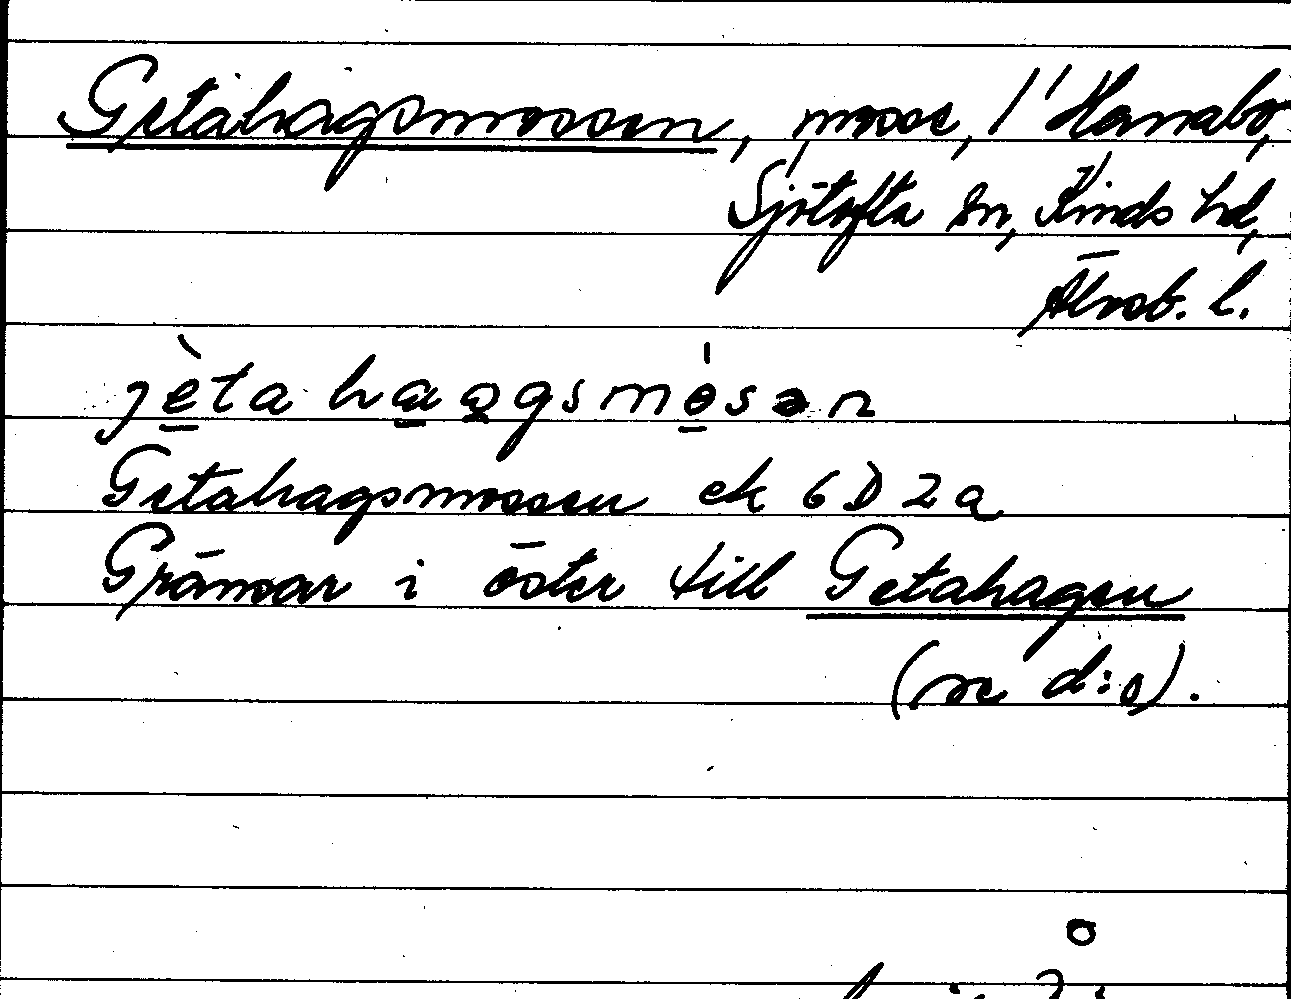 Getahagsmossen, mosse, 1' Hannabo,
Sjötofta sn, Kinds hd,
Älvsb. l.
jèta haagsmósən
Getahagsmossen ek 6 D 2 a
Gränsar i öster till Getahagen
(se d:o).